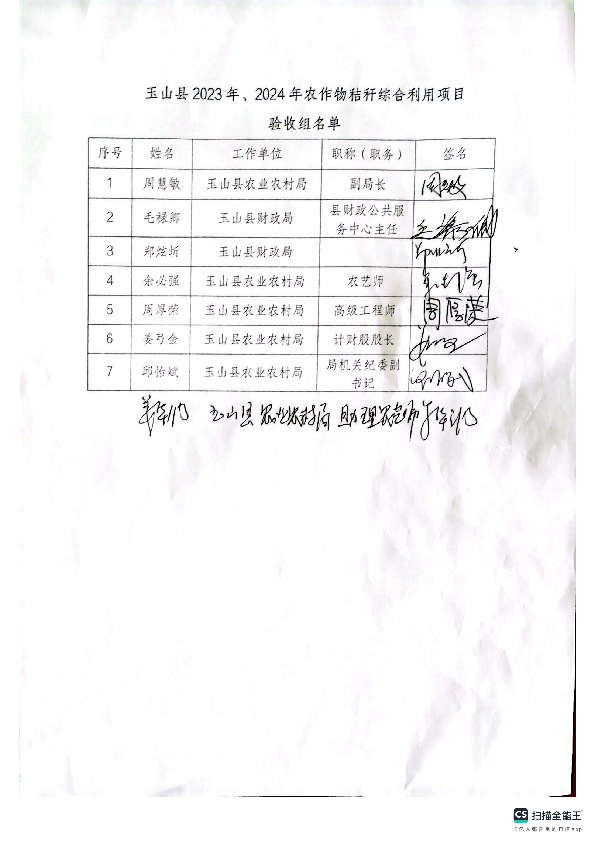 玉山县2023年、2024年农作物秸秆综合利用项目
验收组名单
序号 姓名 工作单位 职称（职务） 签名
1 周慧敏 玉山县农业农村局 副局长
2 毛禄卿 玉山县财政局 县财政公共服务中心主任
3 郑炫圻 玉山县财政局
4 余必强 玉山县农业农村局 农艺师
5 周厚荣 玉山县农业农村局 高级工程师 周厚荣
6 姜弓金 玉山县农业农村局 计财股股长
7 邱怡斌 玉山县农业农村局 局机关纪委副书记
玉山县农业农村局 助理农艺师
CS 扫描全能王
3亿人都在用的扫描App